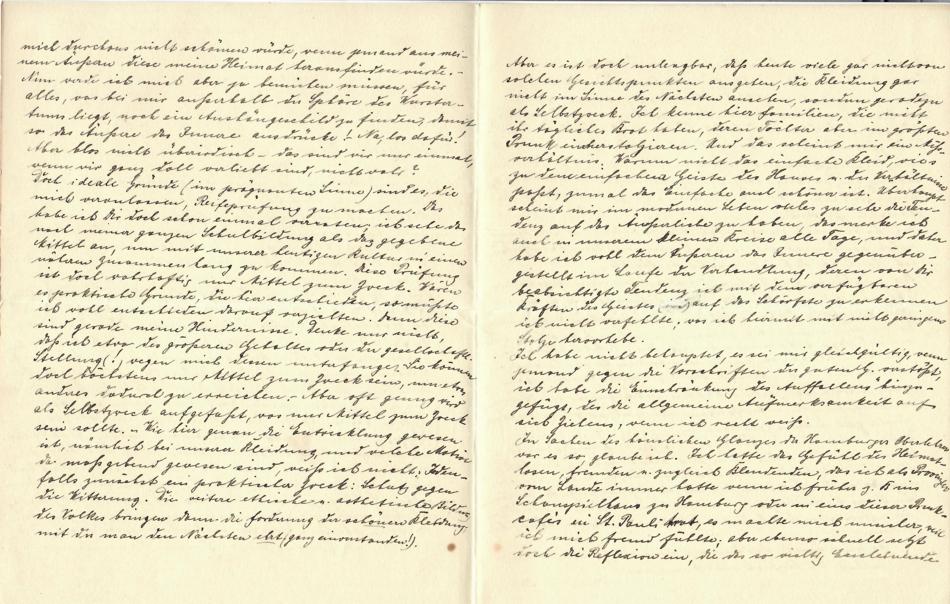 mich durchaus nicht schämen würde, wenn jemand aus mei-
nem Äußern diese meine Heimat herausfinden würde. -
Nun werde ich mich aber ja bemühen müssen, für
alles, was bei mir außerhalb der Sphäre des
liegt, noch ein Aushängeschild zu finden, damit
so das Äußere das Innere ausdrücke! Na, los dafür!
Aber blos nicht überirdisch - das sind wir nur einmal,
wenn wir ganz toll verliebt sind, nicht wahr?
Doch ideale Gründe (im prägnanten Sinne) sind es, die
mich veranlassen, Reifeprüfung zu machen. Das
habe ich Dir doch schon einmal verraten; ich sehe das
nach meiner ganzen Schulbildung als das gegebene
Mittel an, um mit unserer heutigen Kultur in einen
näheren Zusammenhang zu kommen. Diese Prüfung
ist doch wahrhaftig nur Mittel zum Zweck. Wären
es praktische Gründe, die hier entschieden, so müßte
ich wohl entschieden darauf verzichten. Denn diese
sind gerade meine Hindernisse. Denke nur nicht,
daß ich etwa des größeren Gehaltes oder der gesellschaftl.
Stellung (!) wegen mich diesem unterfange. Sie können
doch höchstens nur Mittel zum Zweck sein, um etwas
andres dadurch zu erreichen. - Aber oft genug wird
als Selbstzweck aufgefaßt, was nur Mittel zum Zweck
sein sollte. - Wie hier genau die Entwicklung gewesen
ist, nämlich bei unserer Kleidung, und welche Motive
da maßgebend gewesen sind, weiß ich nicht; jeden-
falls zunächst ein praktischer Zweck: Schutz gegen
die Witterung. Die weitere ethische u. ästhetische Bildung
des Volkes bringen dann die Forderung der schönen Kleidung,
mit der man den Nächsten ehrt (ganz einverstanden!).
Aber es ist doch unleugbar, daß heute viele gar nicht von
solchen Gesichtspunkten ausgehen, die Kleidung gar
nicht im Sinne des Nächsten ansehen, sondern geradezu
als Selbstzweck. Ich kenne hier Familien, die nicht
ihr tägliches Brot haben, deren Töchter aber im größten
Prunk einherstolzieren. Und das scheint mir ein Miß-
verhältnis. Warum nicht das einfache Kleid, wie's
zu dem einfachen Geiste des Hauses u. der Verhältnisse
paßt, zumal das Einfache auch schön ist. Überhaupt
scheint mir im modernen Leben vieles zu sehr die Ten-
denz auf das Äußerliche zu haben, das merke ich
auch in unserem kleinen Kreise alle Tage, und daher
habe ich wohl dem Äußeren das Innere gegenüber-
gestellt im Laufe der Verhandlung, deren von Dir
beabsichtigte Tendenz ich mit dem verfügbaren
Kräften des Geistes auf das Schärfste zu erkennen
ich nicht verfehlte, was ich hiermit mit nicht geringem
Stolze hervorhebe.
Ich habe nicht behauptet, es sei mir gleichgültig, wenn
jemand gegen die Vorschriften des guten G. verstößt,
ich habe die Einschränkung des Auffallens hinzu-
gefügt, des die allgemeine Aufmerksamkeit auf
sich Ziehens, wenn ich recht weiß.
In Sachen des Glanzes der Hamburger
war es so, glaube ich. Ich hatte das Gefühl des Heimat-
losen, Fremden u. zugleich Blendenden, das ich als
vom Lande immer hatte wenn ich früher z. B. ins
Schauspielhaus zu Hamburg oder in eines dieser Prunk-
cafés in St. Pauli trat, es machte mich unsicher, weil
ich mich fremd fühlte; aber ebenso schnell setzt
doch die Reflexion ein, die das so